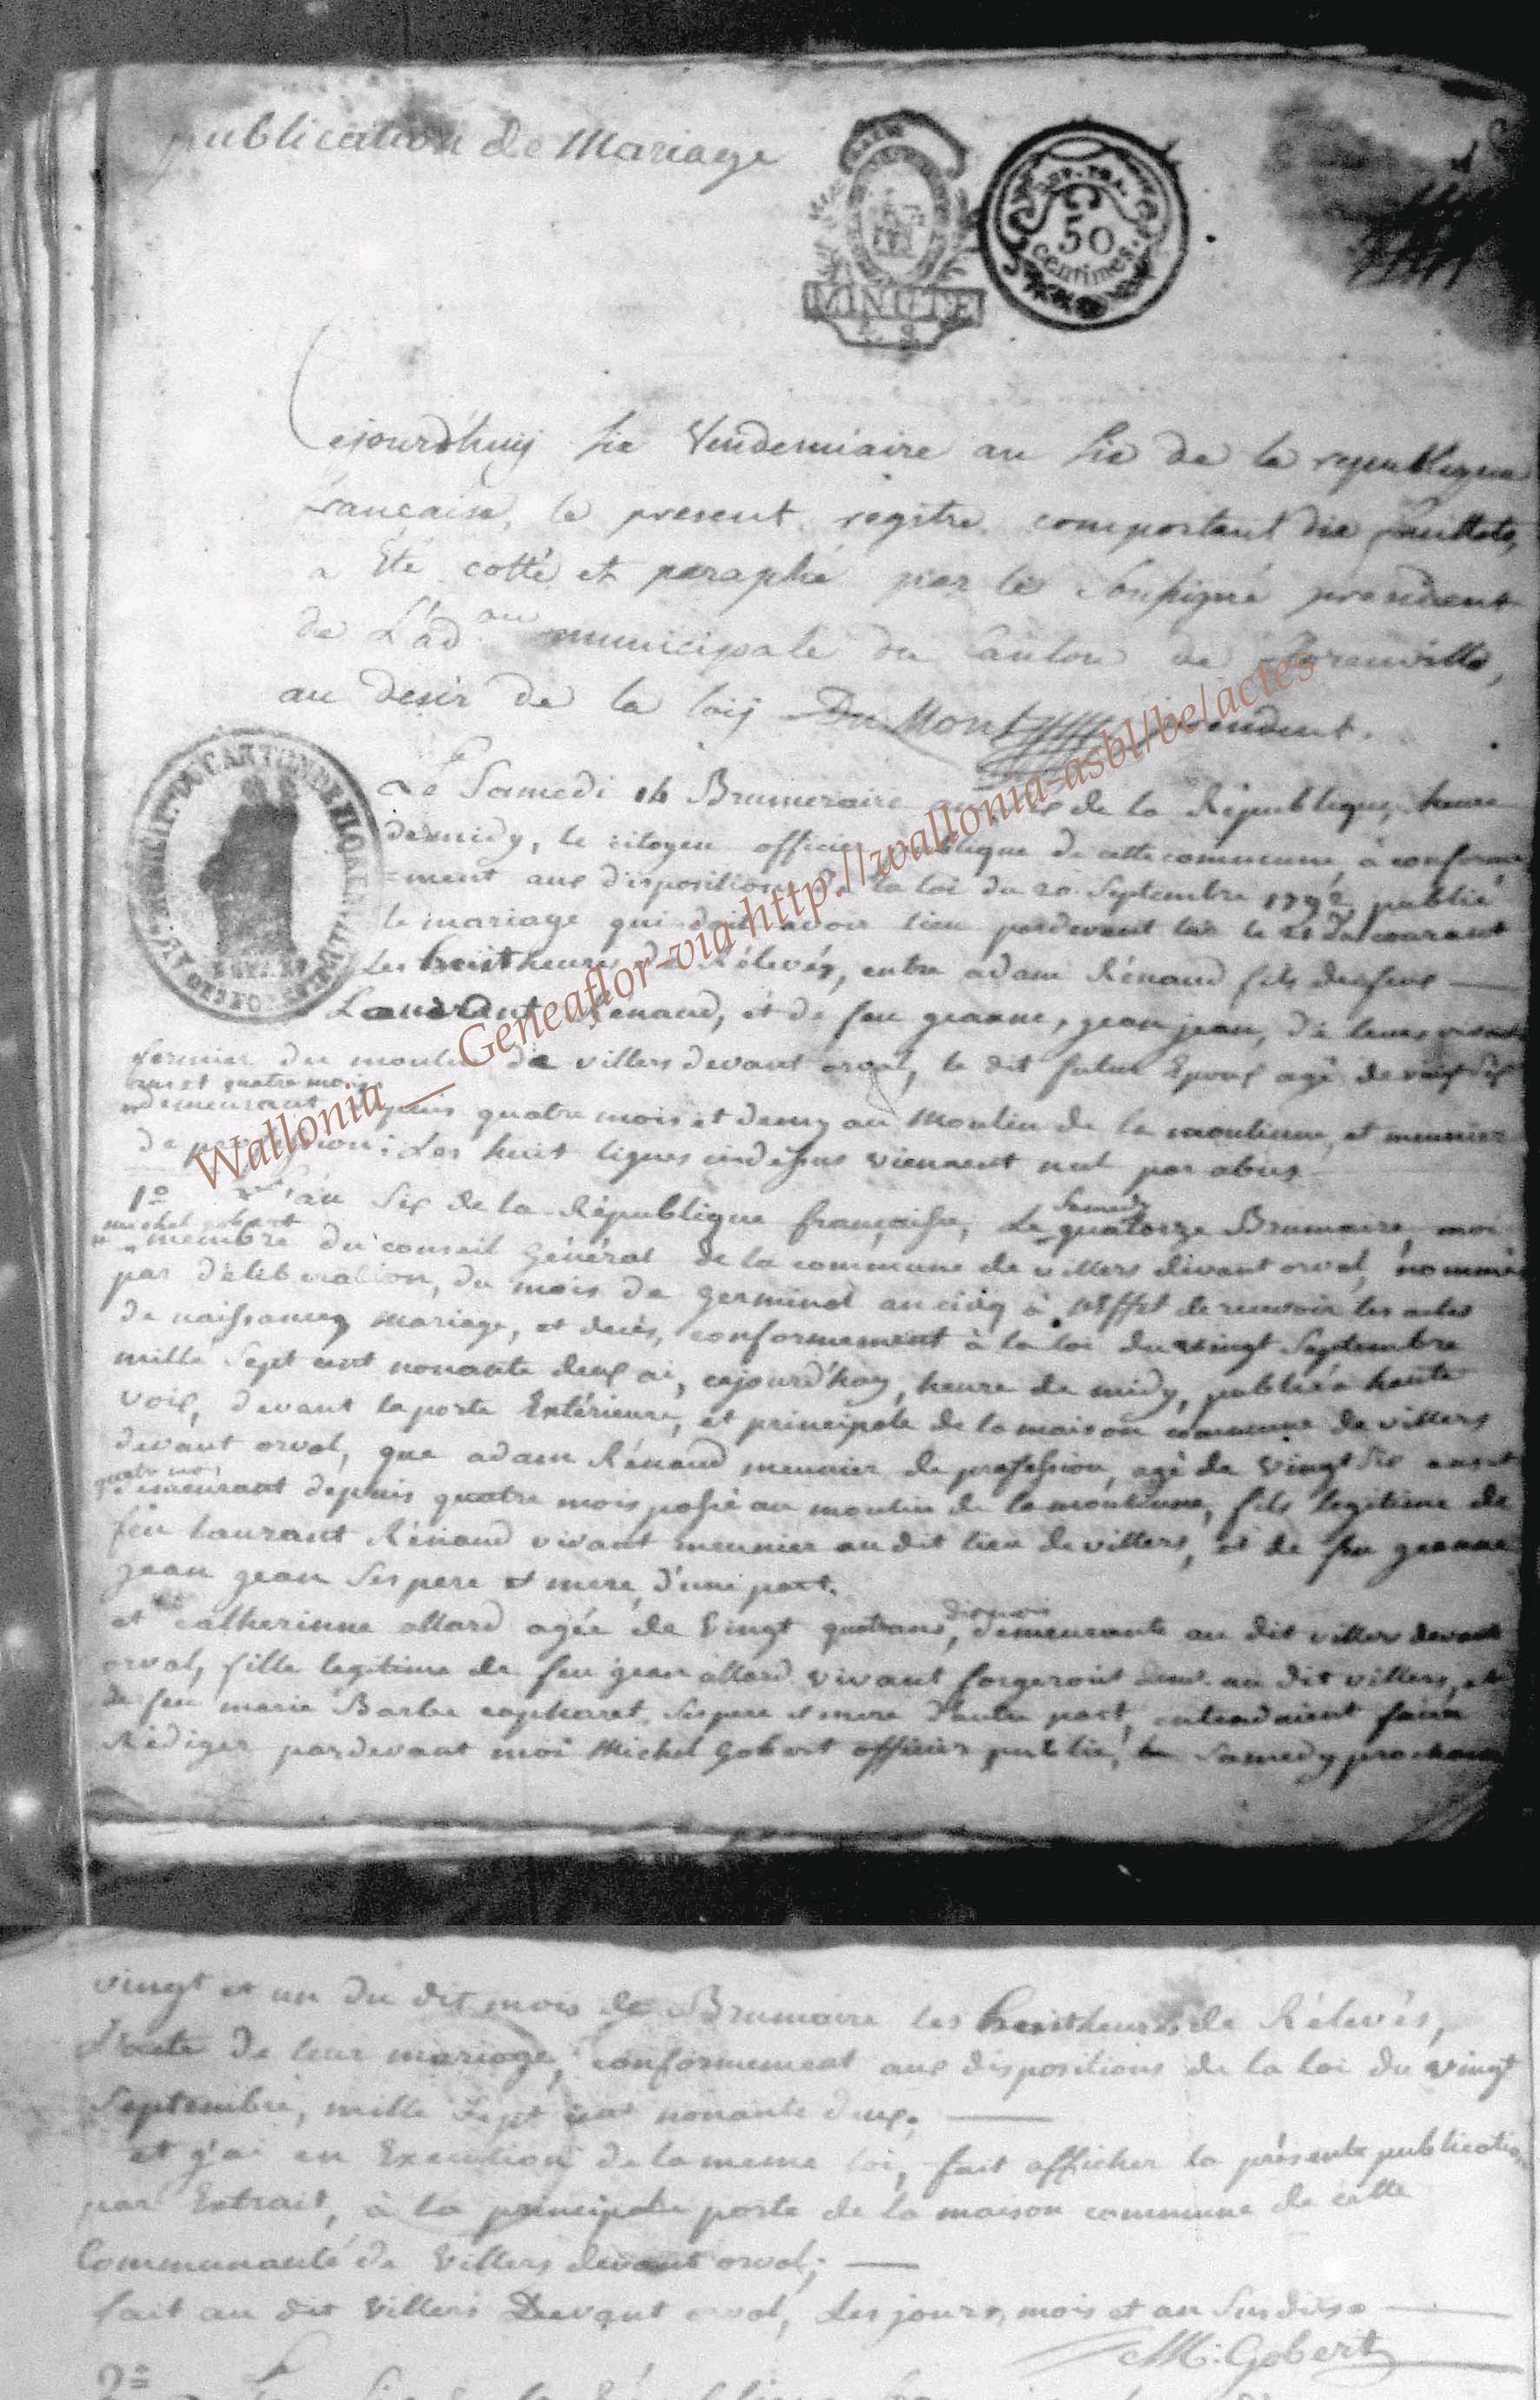 publication de Mariage
MINUTE
50
centimes.
Cejourd'huy six Vendemiaire an six de la republique
francaise, le present registre comportant dix feuillets,
a Eté cotté et paraphé par le soussigné president
de L'ad.on municipale du Canton de florenville,
au desir de la loij Du Mont president.
Le Samedi 14 Brumeraire an six de la République, heure
de midy, le citoyen officier publique de cette commune, à conforme
=ment aux dispositions de la loi du 20 Septembre 1792 publié
le mariage qui doit avoir lieu pardevant lui le 21 du courant
les huit heures de Rélevéz, entre adam Rénaud fils de feux
Laurant Renaud, et de feu geanne, jean jean, de leurs vivant
fermier du moulin de villers devant orval, le dit futur Epoux agé de vingt six
ans et quatre mois
demeurant depuis quatre mois et demy au Moulin de la moulinne, et meunier
de profession: Les huit lignes cidessus viennent nul par abus
1º L'an Six de la République françaisse, Le Samedy quatorze Brumaire, moi
michel gobert
membre du conseil Général de la commune de villers divant orval, nommé
par déliberation, du mois de germinal an cinq à l'Effet de recevoir les actes
de naissances, mariage, et decès, conformement à la loi du vingt Septembre
mille Sept cent nonante deux ai, cejourd'huy, heure de midy, publié à haute
voix, devant la porte Extérieure, et principale de la maison commune de villers
devant orval, que adam Rénaud meunier de profession, agé de vingt six ans et
quatre mois
demeurant depuis quatre mois passé au moulin de la moulinne, fils legitime de
feu laurant Rénaud vivant meunier au dit lieu de villers, et de feu geanne
jean jean Ses pere et mere, d'une part.
et catherinne allard agée de vingt quatrans, dix mois, demeurante au dit villers devant
orval, fille legitime de feu jean allard vivant forgeront au dit villers, et
de feu marie Barbe Ses pere et mere d'autre part, entendaient faire
Rédiger pardevant moi Michel Gobert officier public, le Samedy prochain
vingt et un du dit mois de Brumaire les huit heures de Rélevés,
l'acte de leur mariage, conformement aux dispositions de la loi du vingt
Septembre, mille Sept cent nonante deux.
et j'ai en Execution de la meme loi, fait afficher la présente publication
par Extrait, à la principale porte de la maison commune de cette
Communauté de Villers devant orval;
fait au dit Villers Devant orval, les jours, mois et an Susdits
M: Gobert
2º
Wallonia _ Geneaflor-via http://wallonia-asbl/be/actes